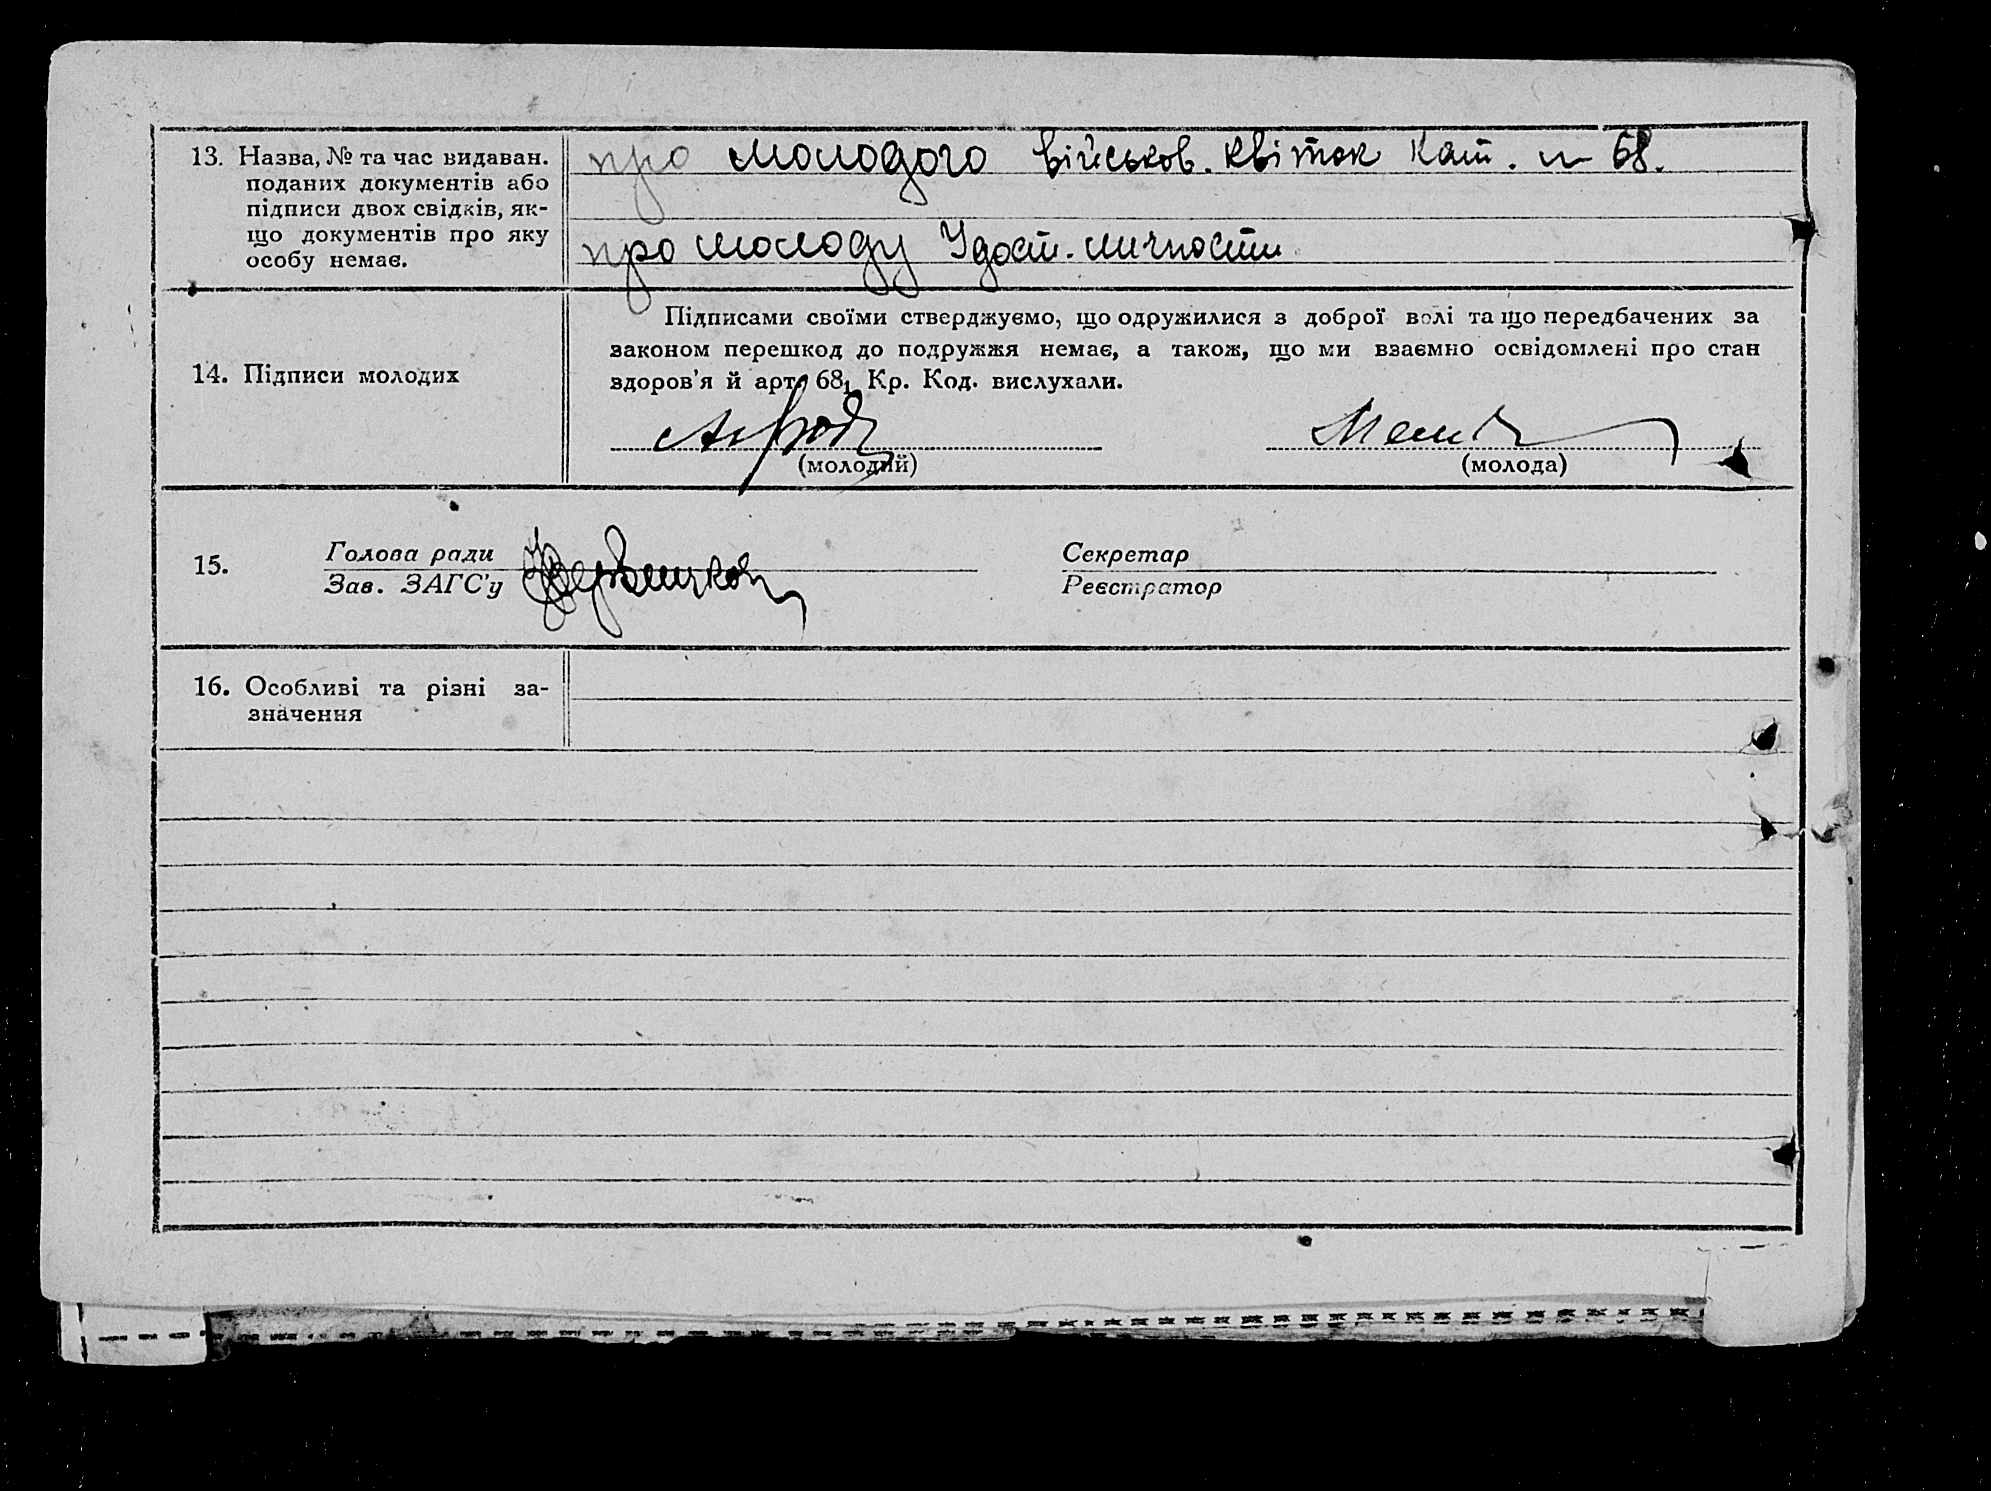 13. Назва, № та час видаван.
поданих документів або
підписи двох свідків, як-
що документів про яку
особу немає.
про молодого військов. квіток Кат. № 68.
про молоду Удост. личности
14. Підписи молодих
Підписами своїми стверджуємо, що одружилися з доброї волі та що передбачених за
законом перешкод до подружжя немає, а також, що ми взаємно освідомлені про стан
здоров'я й арт. 68₁ Кр. Код. вислухали.
(молодий)
(молода)
15.
Голова ради
Зав. ЗАГС'у
Секретар
Реєстратор
16. Особливі та різні за-
значення